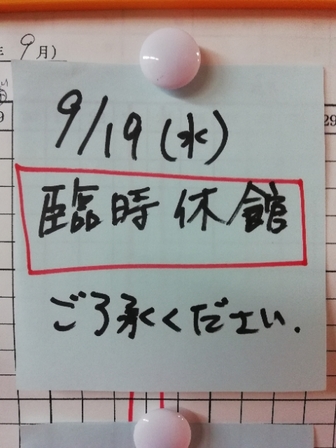 9月)
9/19(水)
臨時休館
ご了承ください.
29